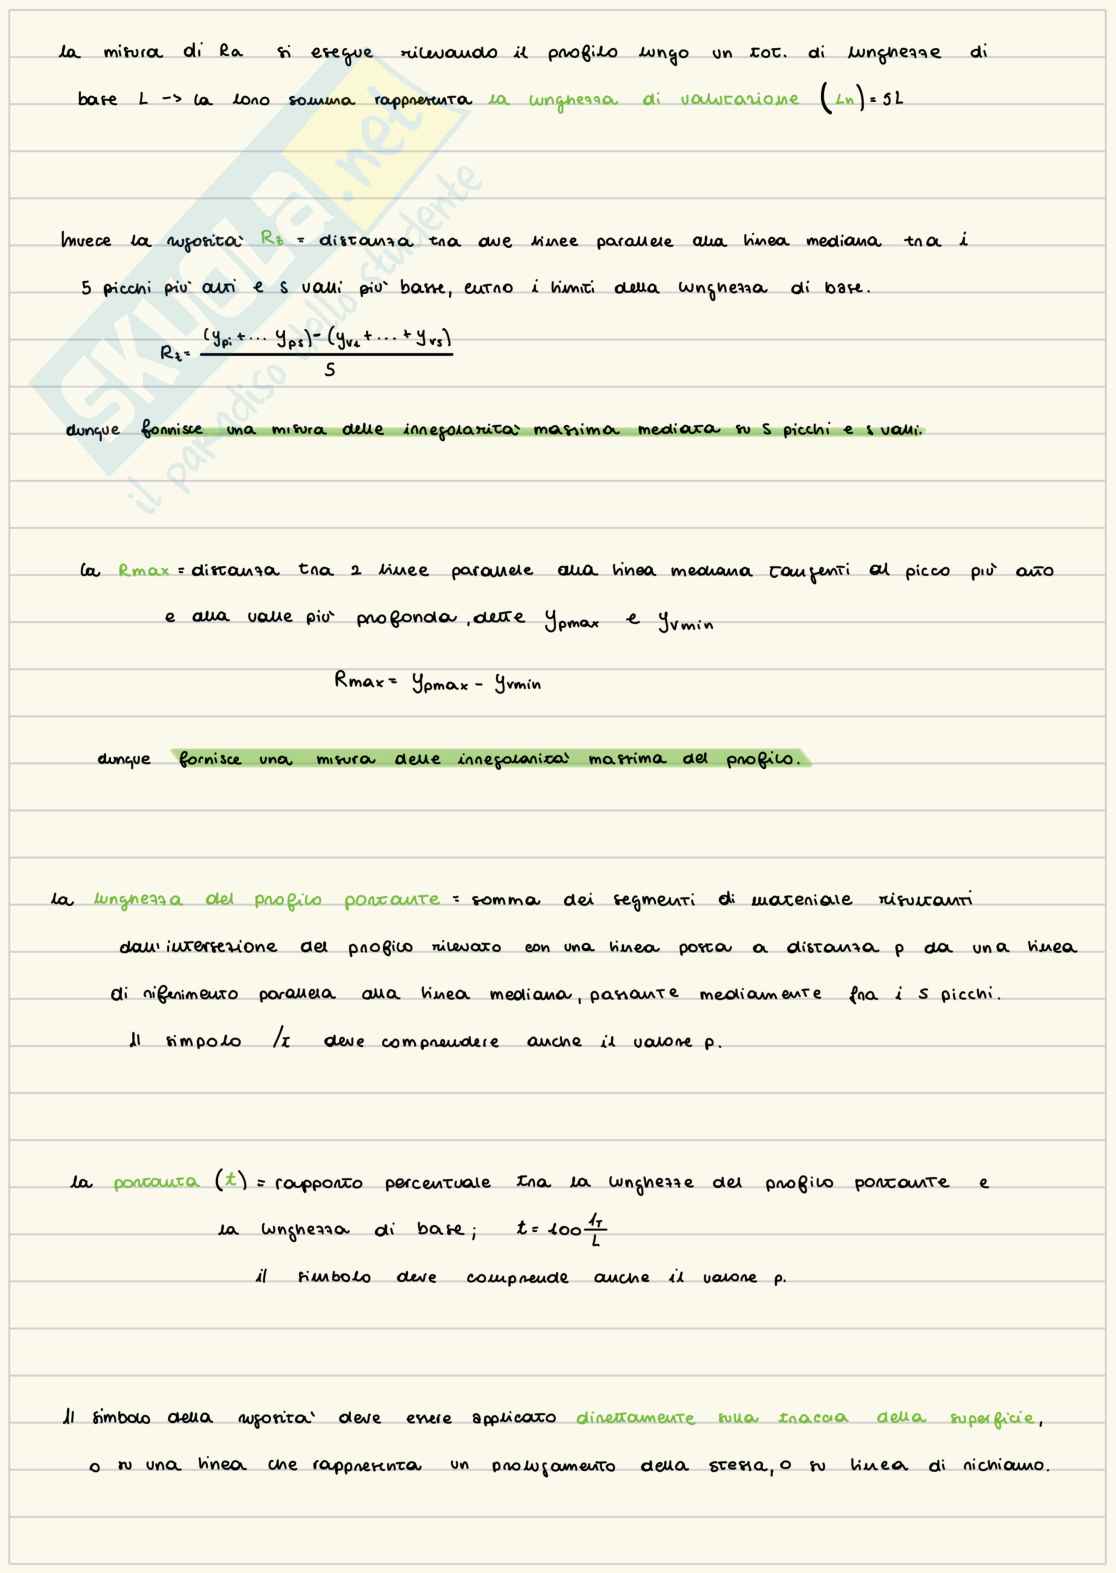 la misura di Ra si esegue rilevando il profilo lungo un tot. di lunghezze di
base L -> la loro somma rappresenta la lunghezza di valutazione (Ln) = 5L
Invece la rugosita' Rz = distanza tra due linee parallele alla linea mediana tra i
5 picchi piu' alti e 5 valli piu' basse, entro i limiti della lunghezza di base.
Rz = (ypi + ... yps) - (yv1 + ... + yvs) / 5
dunque fornisce una misura delle irregolarita' massima mediata su 5 picchi e 5 valli.
la Rmax = distanza tra 2 linee parallele alla linea mediana tangenti al picco piu' alto
e alla valle piu' profonda, dette ypmax e yvmin
Rmax = ypmax - yvmin
dunque fornisce una misura delle irregolarita' massima del profilo.
la lunghezza del profilo portante = somma dei segmenti di materiale risultanti
dall'intersezione del profilo rilevato con una linea posta a distanza p da una linea
di riferimento parallela alla linea mediana, passante mediamente fra i 5 picchi.
Il simpolo /t deve comprendere anche il valore p.
la portanta (t) = rapporto percentuale tra la lunghezze del profilo portante e
la lunghezza di base; t = 100 lT/L
il simbolo deve comprende anche il valore p.
Il simbolo della rugosita' deve essere applicato direttamente sulla traccia della superficie,
o su una linea che rappresenta un prolugamento della stessa, o su linea di richiamo.
SKUOLA.net
il paradiso dello studente